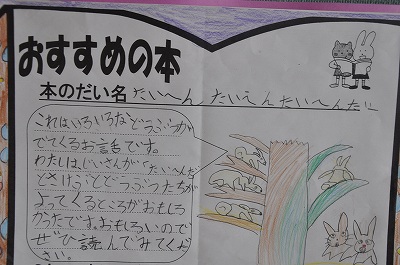 おすすめの本
本のだい名 たいへん、たいへん、たいへんだ!!
これはいろいろなどうぶつが
でてくるお話です。
わたしは、じいさんが「たいへんだ」
とさけぶとどうぶつたちが
よってくるところがおもしろ
かったです。おもしろいので
ぜひ読んでみてくだ
さい。